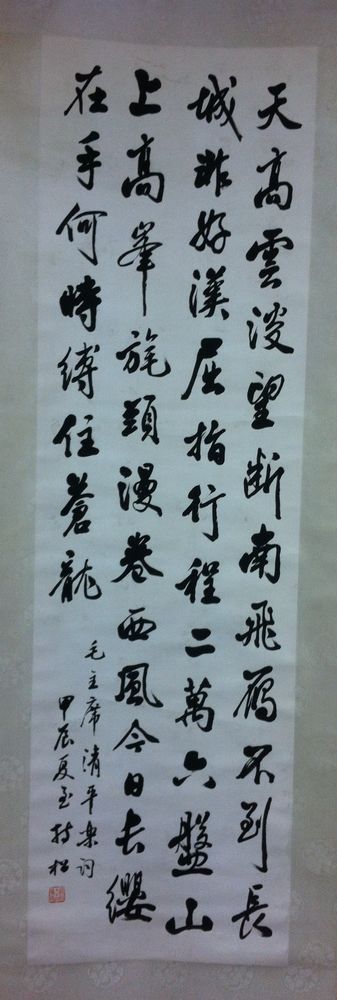 天高雲淡望斷南飛雁不到長
城非好漢屈指行程二萬六盤山
上高峯旄頭漫卷西風今日长纓
在手何時縛住蒼龍
毛主席清平樂詞
甲辰夏至持松